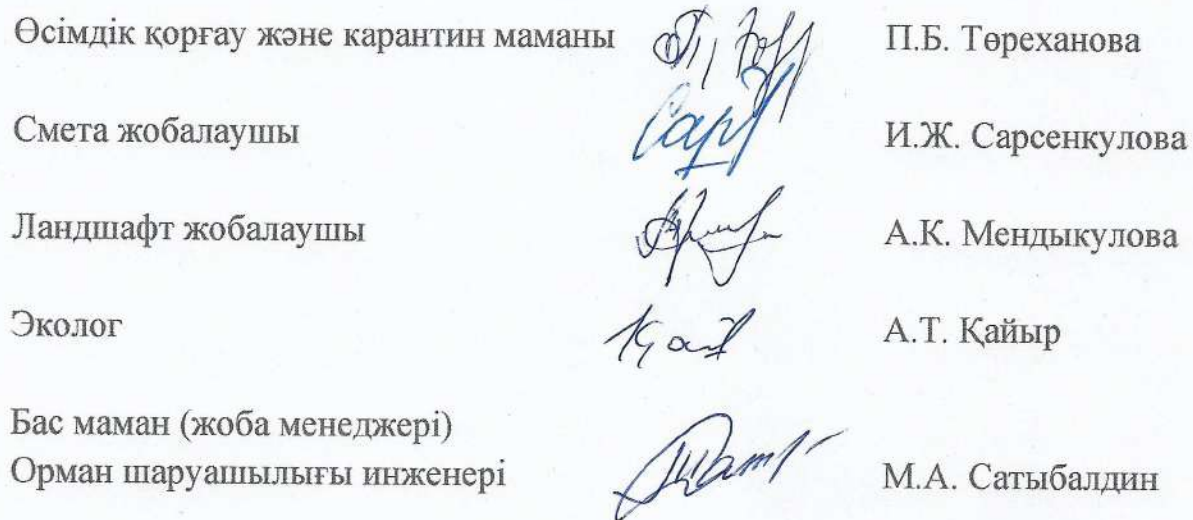 Өсімдік қорғау және карантин маманы П.Б. Төреханова
Смета жобалаушы И.Ж. Сарсенкулова
Ландшафт жобалаушы А.К. Мендыкулова
Эколог А.Т. Қайыр
Бас маман (жоба менеджері)
Орман шаруашылығы инженері М.А. Сатыбалдин